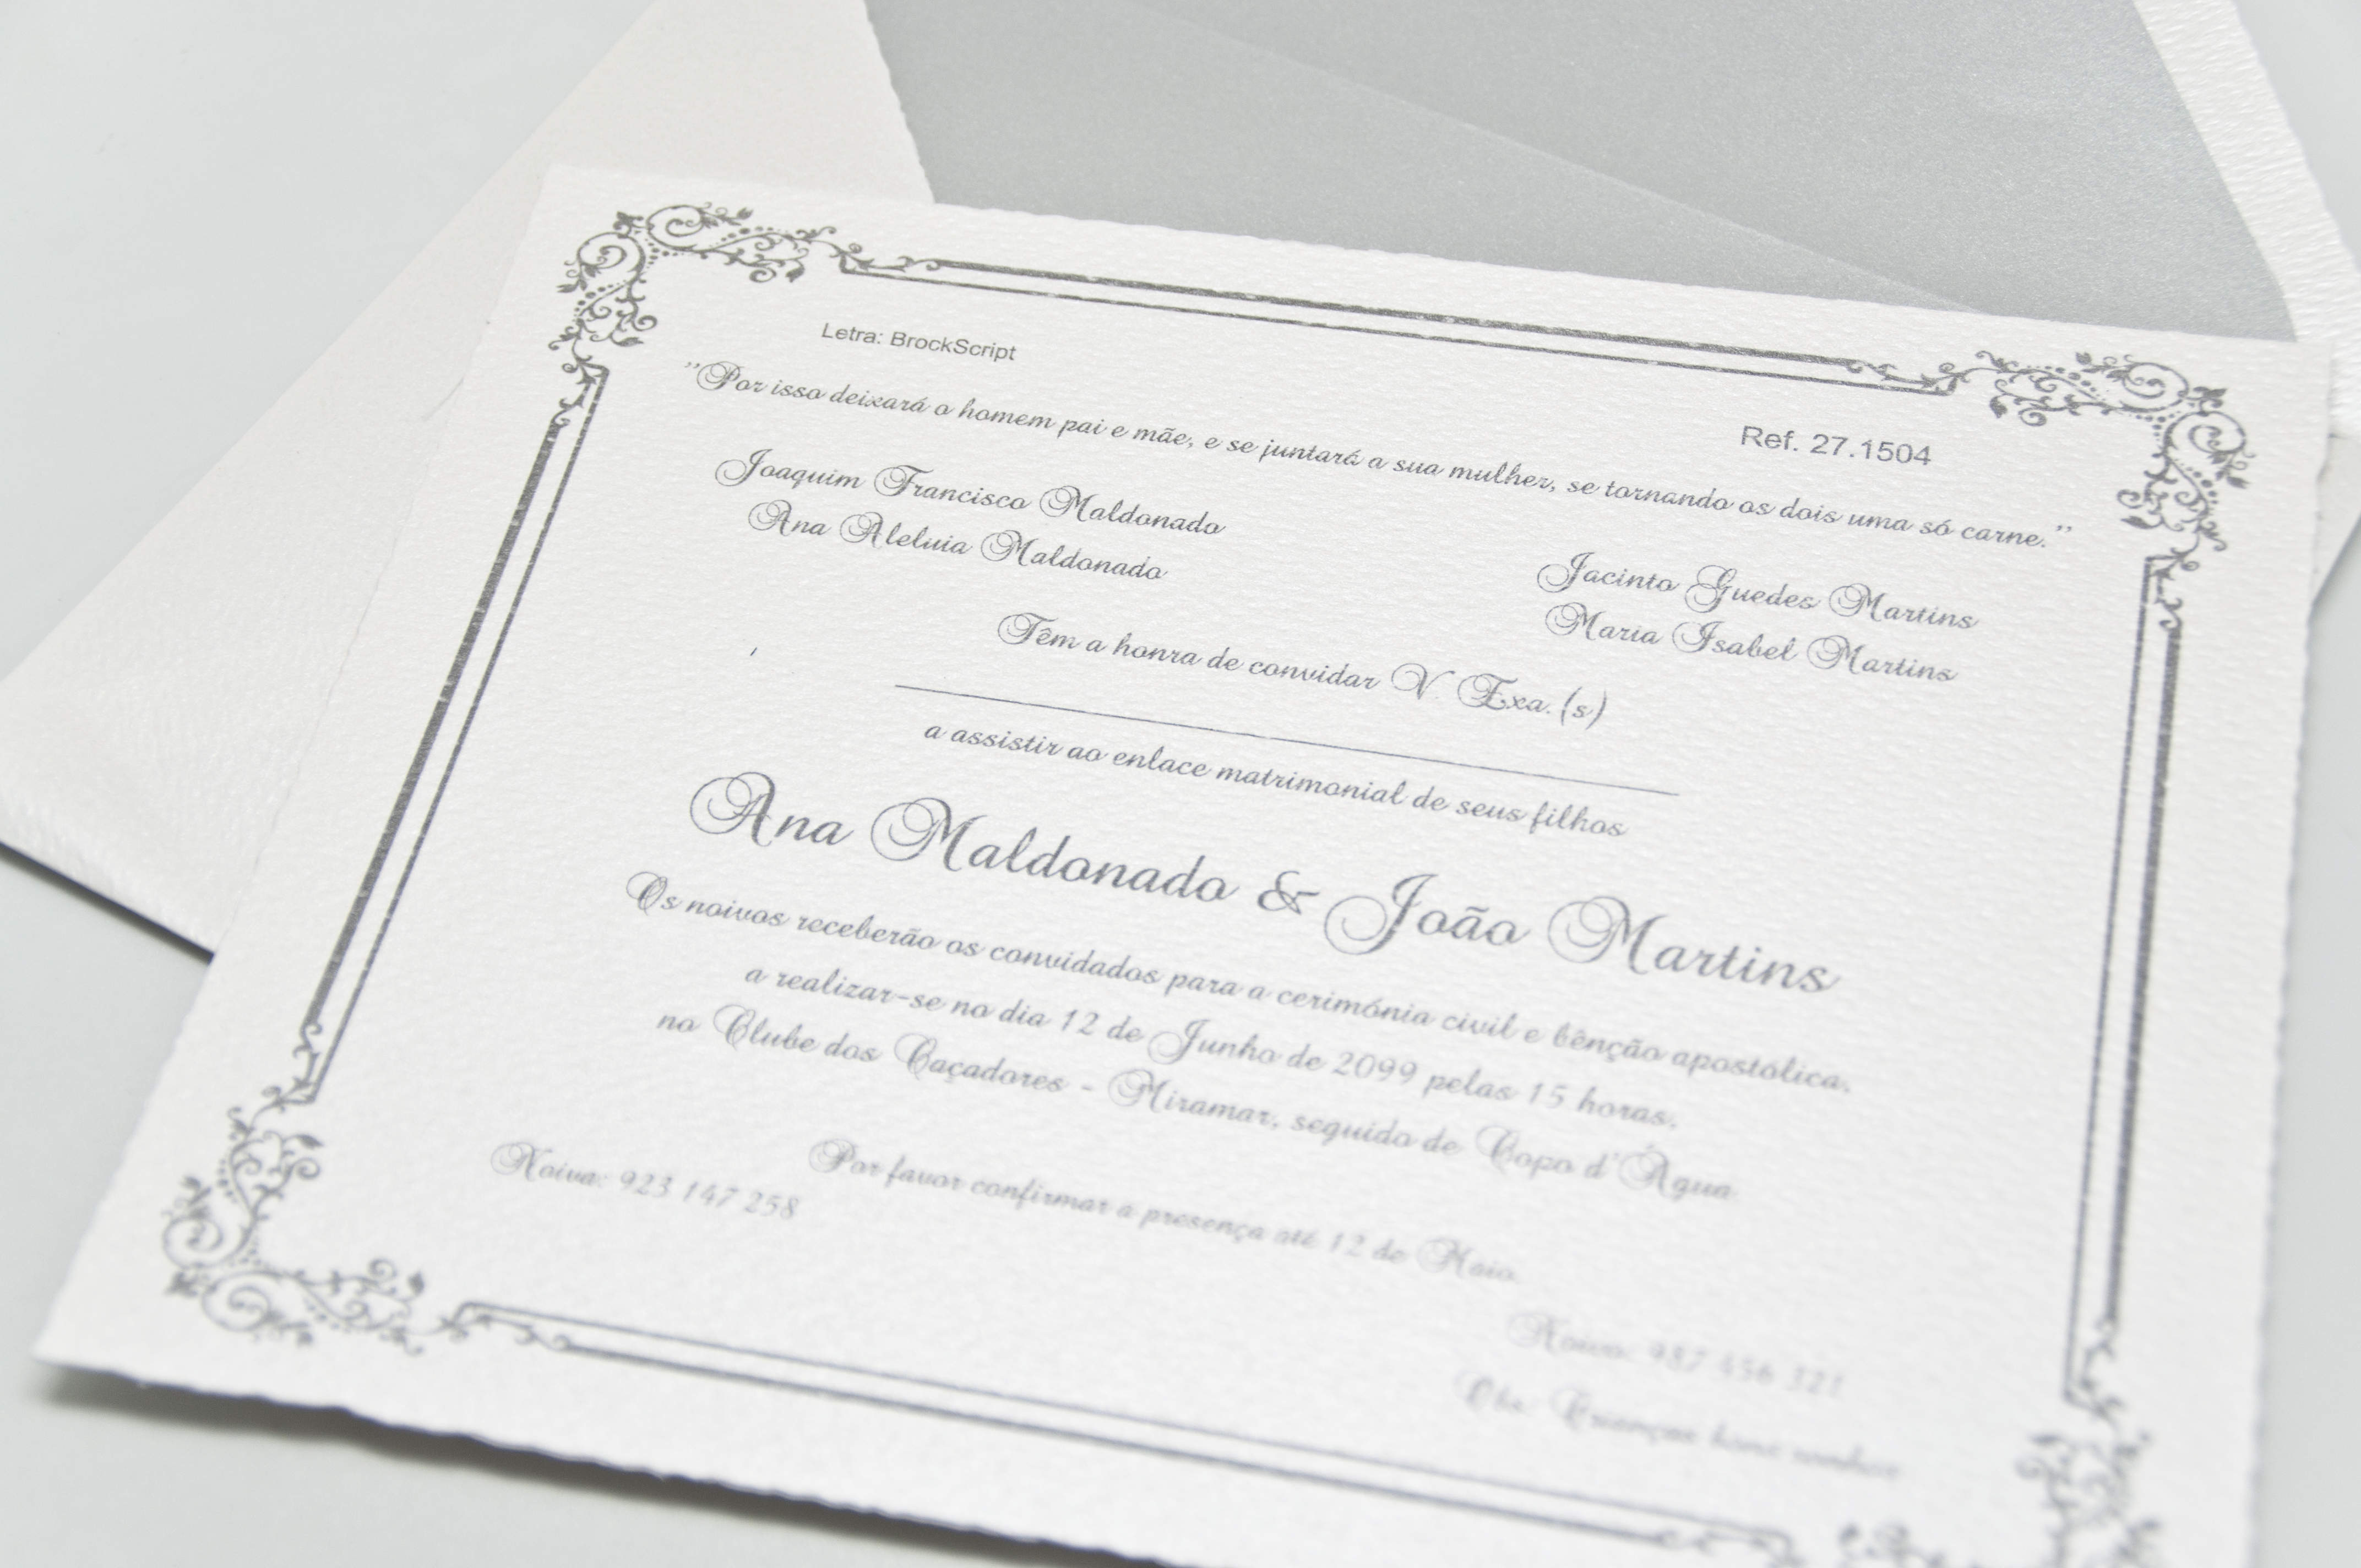 Letra: BrockScript
Ref. 27.1504
"Por isso deixará o homem pai e mãe, e se juntará a sua mulher, se tornando os dois uma só carne."
Joaquim Francisco Maldonado
Ana Aleluia Maldonado
Jacinto Guedes Martins
Maria Isabel Martins
Têm a honra de convidar V. Exa.(s)
a assistir ao enlace matrimonial de seus filhos
Ana Maldonado & João Martins
Os noivos receberão os convidados para a cerimónia civil e bênção apostólica,
a realizar-se no dia 12 de Junho de 2099 pelas 15 horas,
no Clube dos Caçadores - Miramar, seguido de Copo d'Água
Por favor confirmar a presença até 12 de Maio
Noiva: 923 147 258
Noivo: 987 456 321
Obs: Crianças bons sonhos